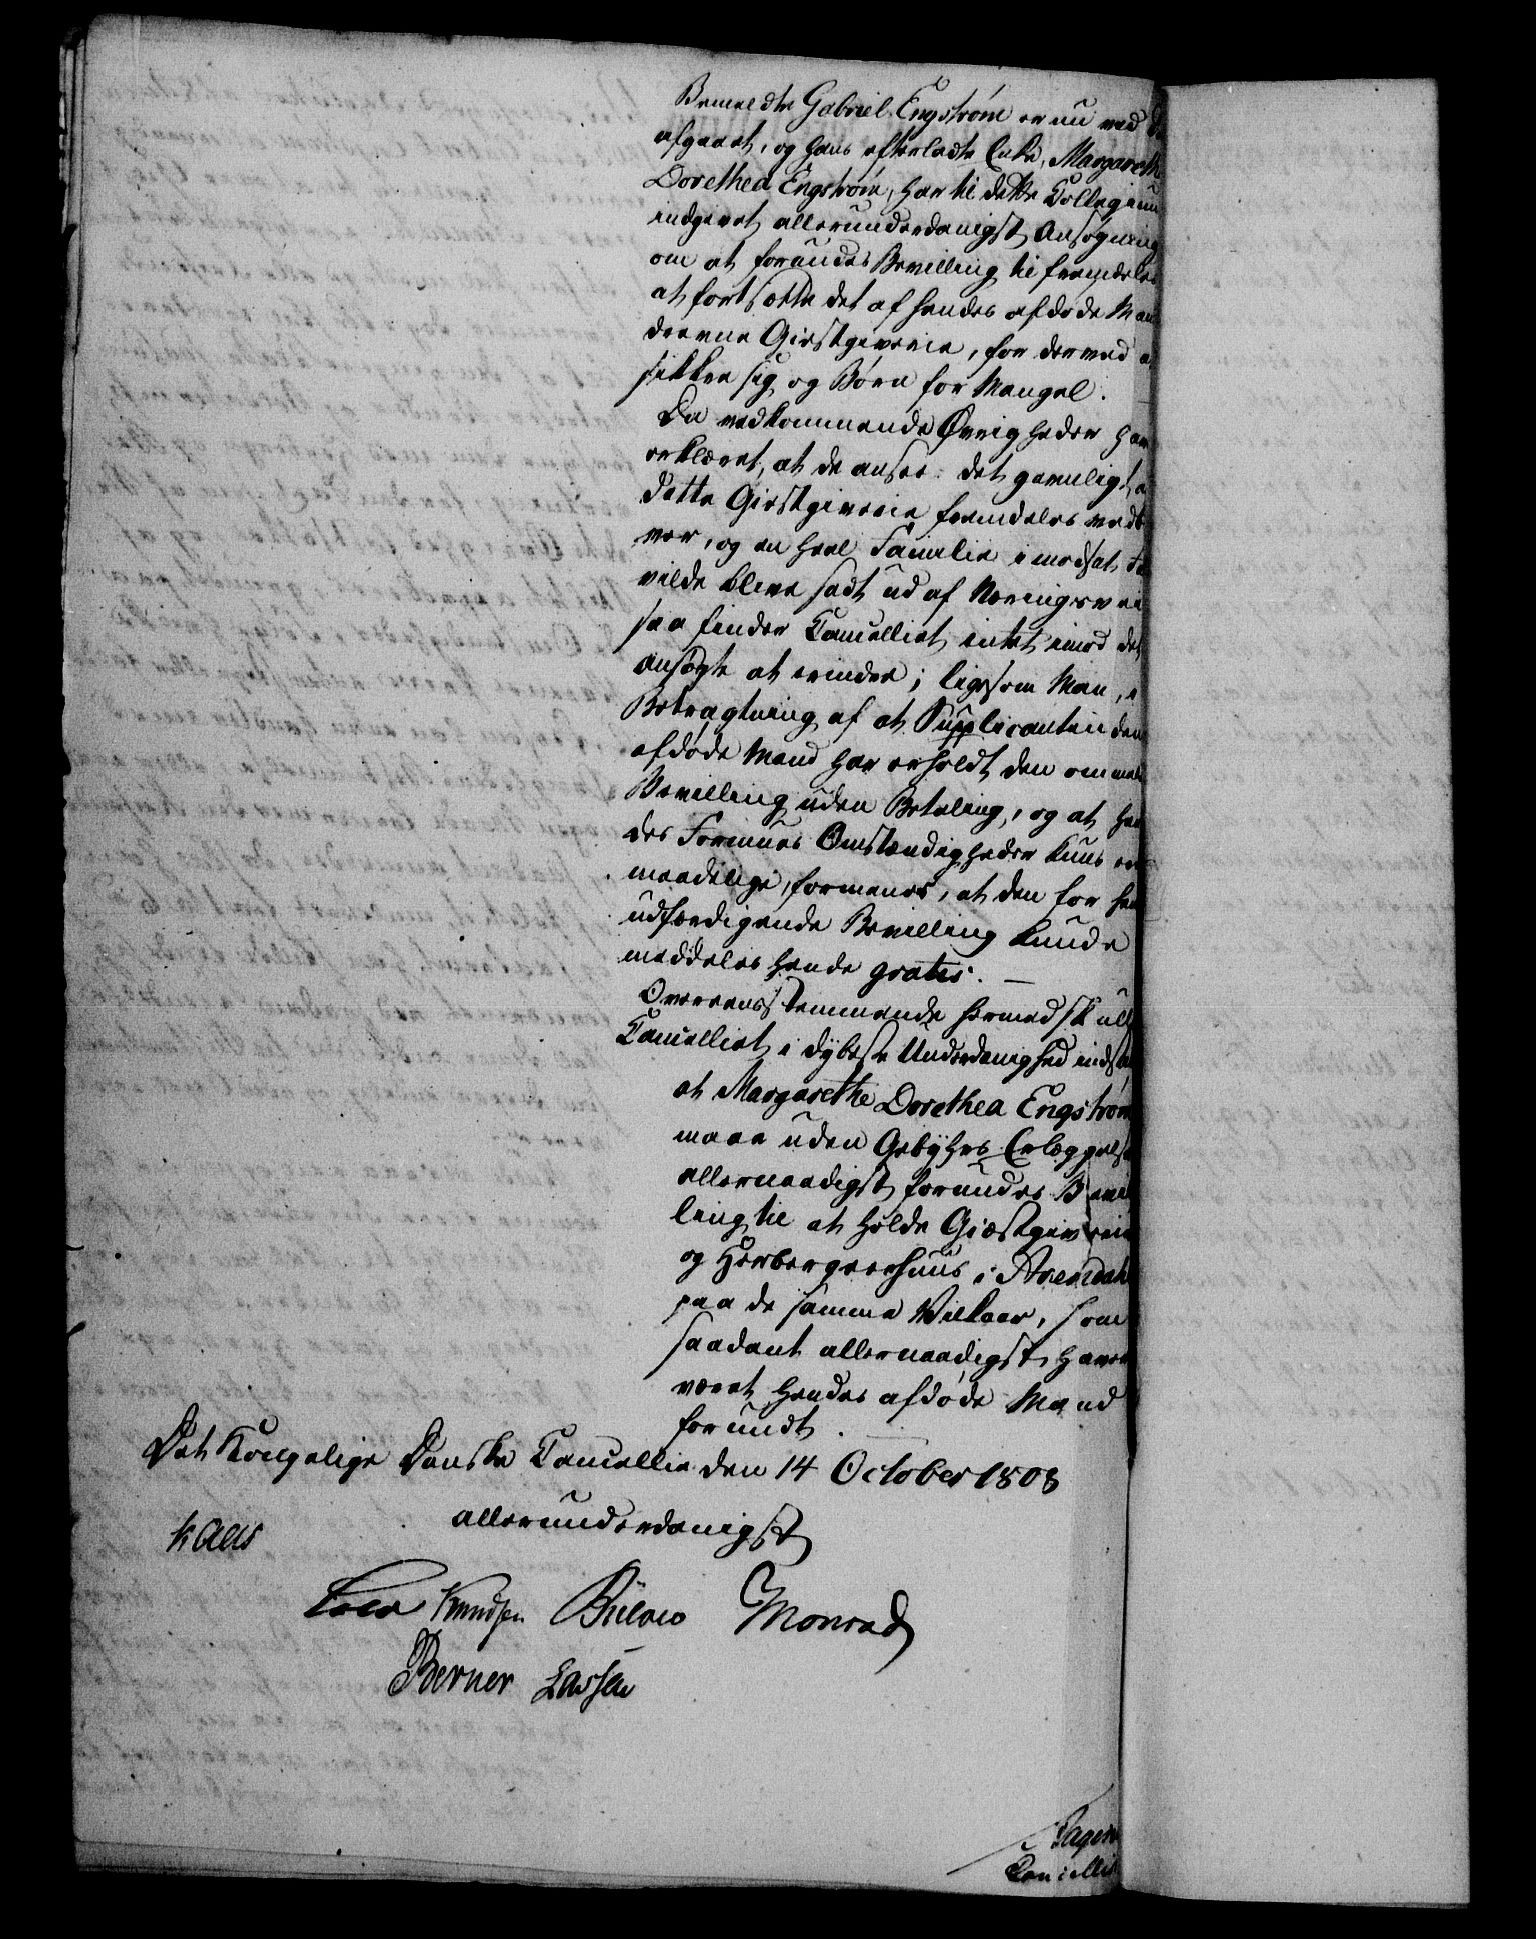 Bemeldte Gabriel Engstrøm er nu ved
afgaaet, og hans efterladte Enke, Margareth
Dorethea Engstrøm, har til dette Collegium
indgivet allerunderdanigst Ansøgning
om at forundes Bevilling til fremdeles
at fortsætte det af hendes afdøde Man
drevne Giestgiverie, for derved a
sikkre sig og Børn for Mangel.
Da vedkommende Øvrigheder har
erklæret, at de ansee det gavnligt, a
dette Giestgiverie fremdeles vedb
ver, og en heel Familie i modsat Fa
vilde blive sadt ud af Næringsvei
saa finder Cancelliet intet imod det
ansøgte at erindre; ligesom Man, i
Betragtning af at Supplicantindens
afdøde Mand har erholdt den ommel
Bevilling uden Betaling, og at hen
des Formues Omstændigheder kuns ere
maadelige, formener, at den for hen
udfærdigende Bevilling kunde
meddeles hende gratis. —
Overeensstemmende hermed skull
Cancelliet i dybeste Underdanighed indst
at Margarethe Dorethea Engstrøm
maae uden Gebyhrs Erlæggelse
allernaadigst forundes Bevil
ling til at holde Giæstgiverie
og Herbergeerhuus i Arendahl
paa de samme Vilkaar, som
saadant allernaadigst haver
været hendes afdøde Mand
forundt.
Det Kongelige Danske Cancellie den 14 October 1808
allerunderdanigst
Kaas
Knudsen Bülow Monrad
Berner Lassen
Cancellie